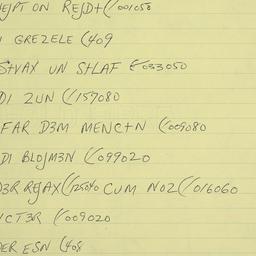 NEJPT ON REJD+(/001050
GREZELE (409
S+VAX UN S+LAF €033050
DI 2UN (/157080
FAR D3M MENC+N (/009080
DI BLOJM3N (/099020
D3R REJAX(/125040 CUM NOZ(/016060
CT3R (/009020
ESN (408